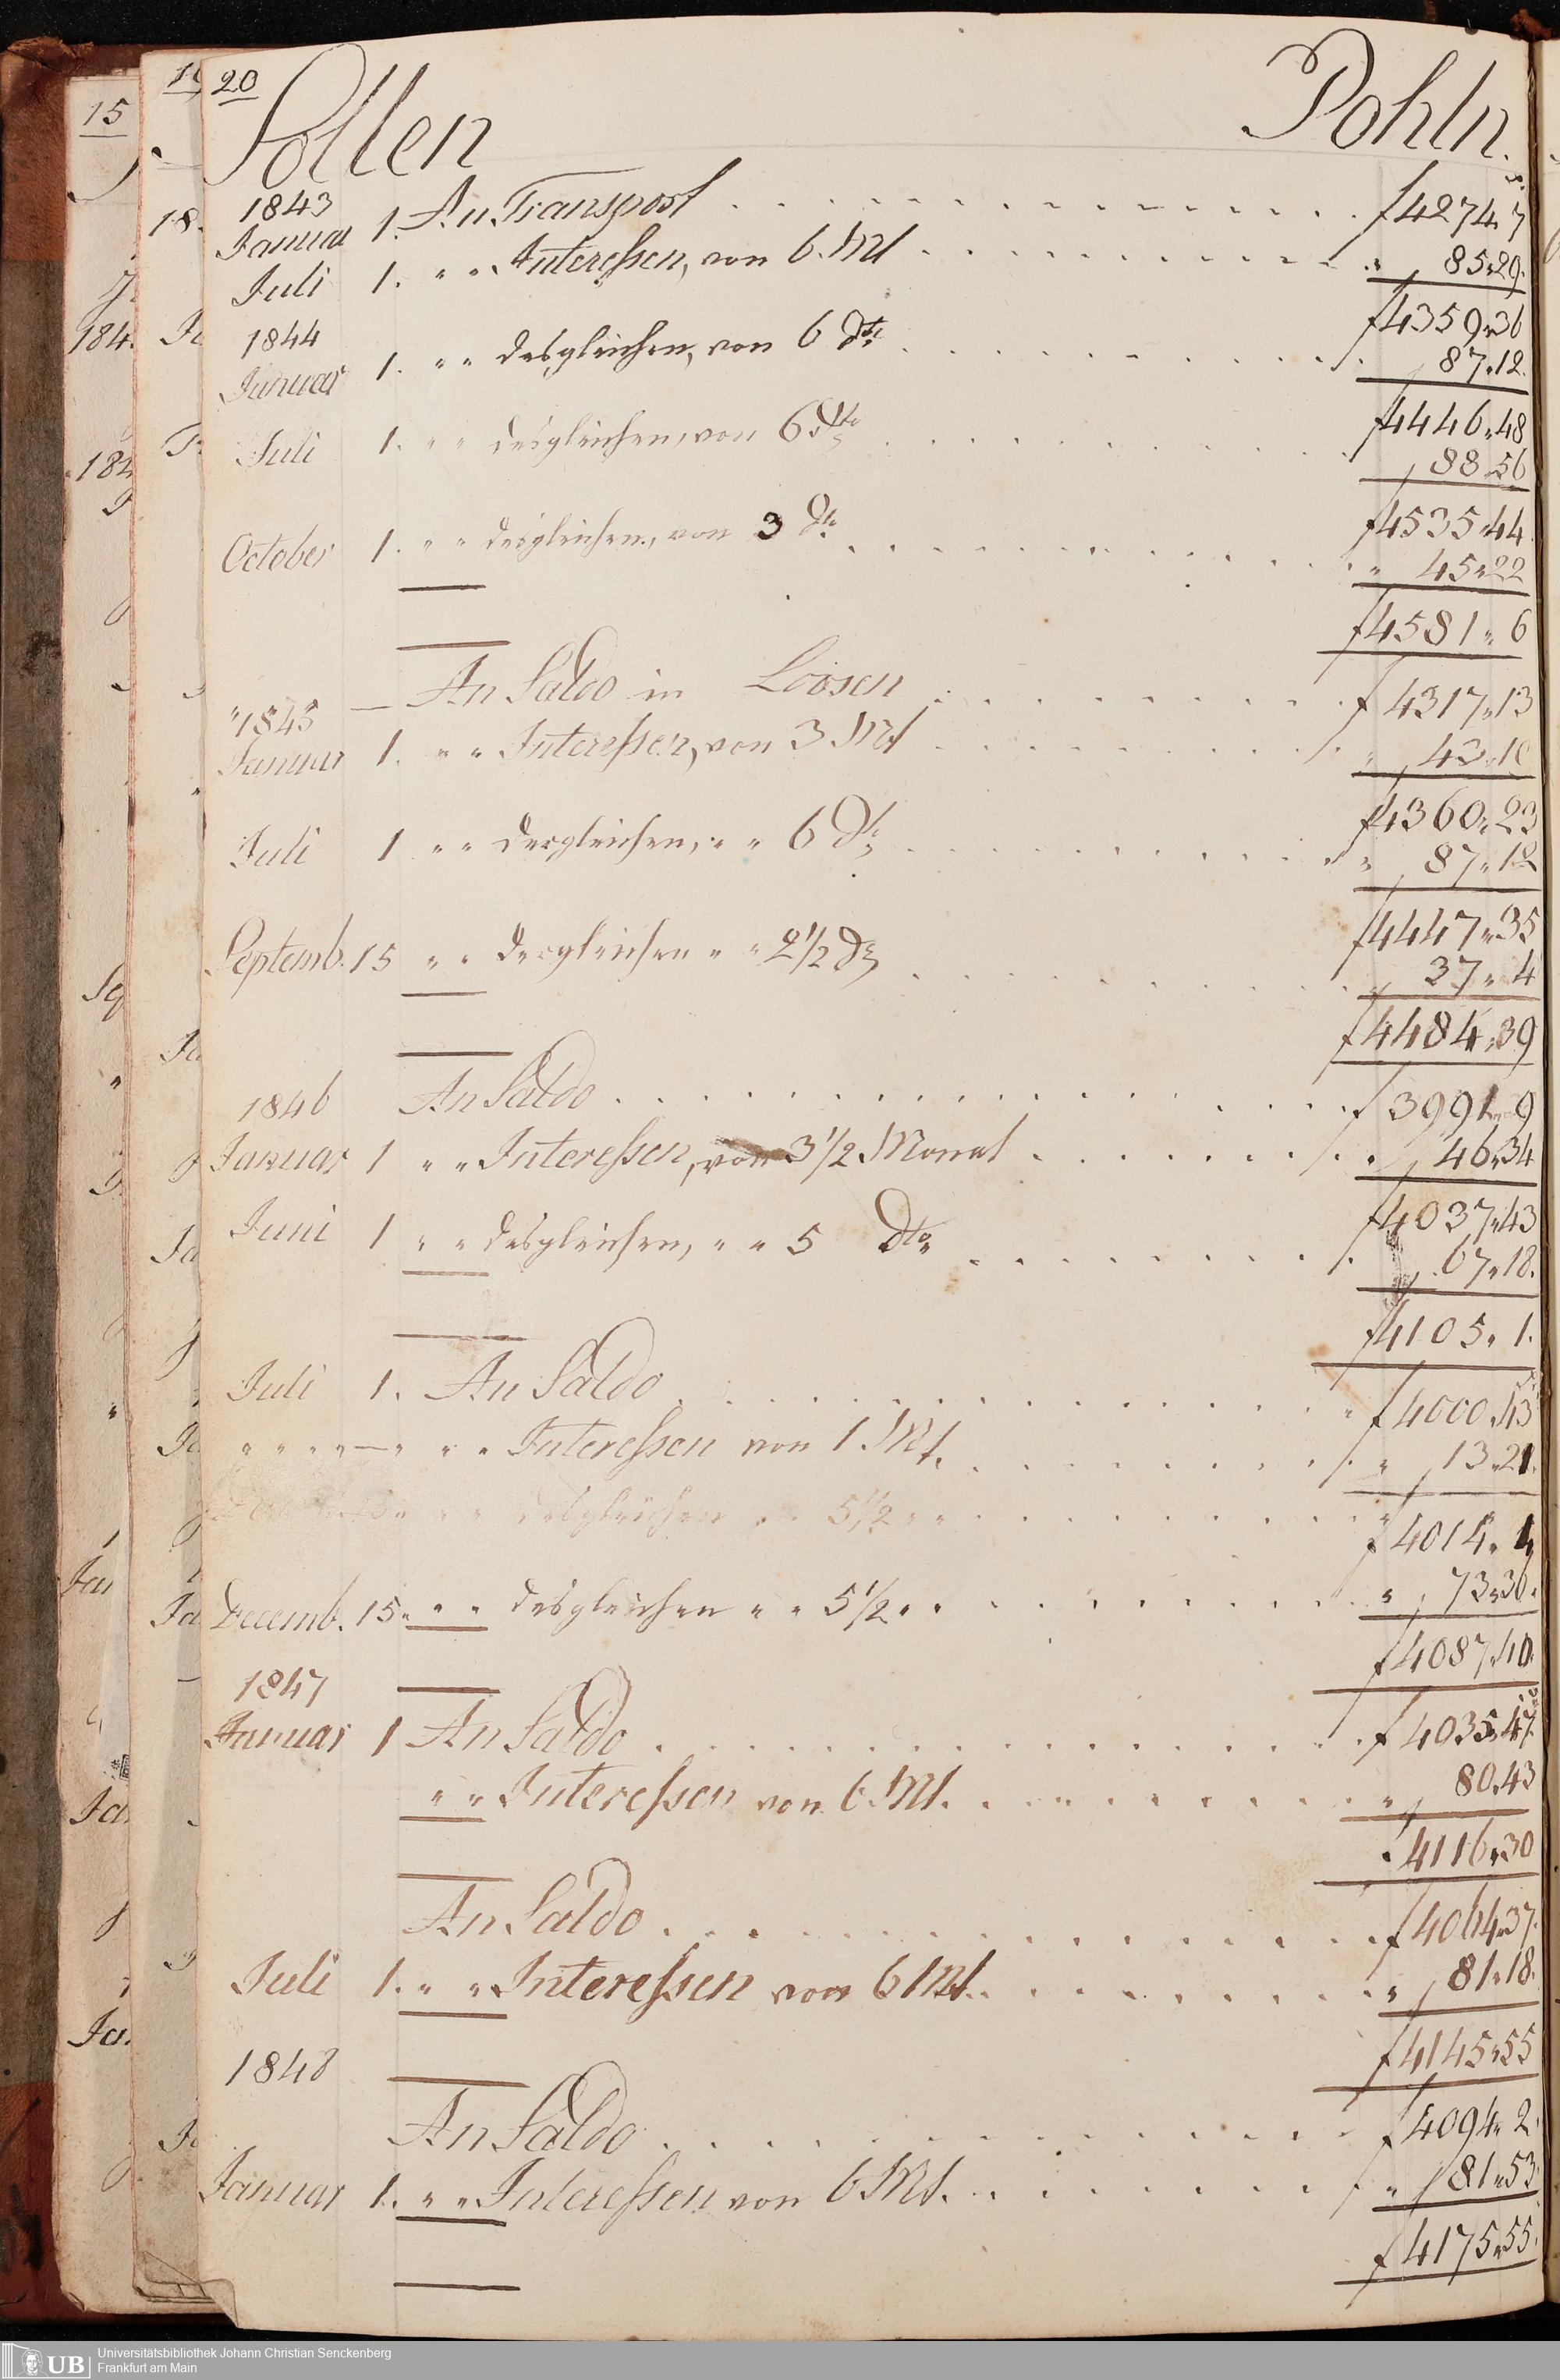 20
Sollen Pohln.
1843
Januar 1. An Transport f 4274 „ 7
Juli 1. „ „ Interessen, von 6. Mt „ 85 „ 29.
f 4359 „ 36
1844
Januar 1. „ „ desgleichen, von 6 dto 87 „ 12.
f 4446 „ 48
Juli 1. „ „ desgleichen, von 6 dto 88 „ 56
f 4535 „ 44
October 1. „ „ desgleichen, von 3 dto „ 45 „ 22
f 4581 „ 6
— An Saldo in Loosen f 4317 „ 13
1845
Januar 1. „ „ Interessen, von 3 Mt „ 43 „ 10
f 4360 „ 23
Juli 1 „ „ desgleichen, „ „ 6 dto „ 87 „ 12
f 4447 „ 35
Septemb. 15 „ „ desgleichen „ „ 2 1/2 dto „ 37 „ 4
f 4484 „ 39
An Saldo f 3991 „ 9
1846
Januar 1 „ „ Interessen, von 3 1/2 Monat „ 46 „ 34
f 4037 „ 43
Juni 1 „ „ desgleichen, „ „ 5 dto „ 67 „ 18.
f 4105 „ 1.
Juli 1. An Saldo „ f 4000 „ 43
„ „ „ „ — „ „ „ Interessen von 1 Mt. „ 13 „ 21.
„ „ desgleichen „ „ 5 1/2 „ „
f 4014 „ 4
Decemb. 15 „ „ „ desgleichen „ „ 5 1/2 „ „ „ 73 „ 36.
f 4087 „ 40.
1847
Januar 1 An Saldo f 4035 „ 47.
„ „ Interessen von 6. Mt. „ 80 „ 43
4116 „ 30
An Saldo f 4064 „ 37.
Juli 1. „ „ Interessen von 6 Mt. „ 81 „ 18.
f 4145 „ 55
1848
An Saldo f 4094 „ 2
Januar 1. „ „ Interessen von 6 Mt. „ 81 „ 53
f 4175 „ 55.
15
184.
184
18.
UB
Universitätsbibliothek Johann Christian Senckenberg
Frankfurt am Main